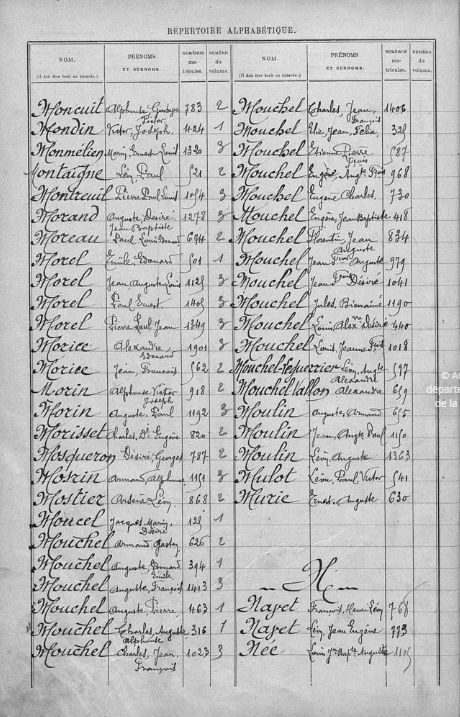 RÉPERTOIRE ALPHABÉTIQUE.
NOM. PRÉNOMS ET SURNOMS. NUMÉROS matricules. NUMÉRO du volume. NOM. PRÉNOMS ET SURNOMS. NUMÉROS matricules. NUMÉRO du volume.
(Il doit être écrit en bâtarde.) (Il doit être écrit en bâtarde.)
Moncuit Alphonse Gustave Victor 783 2
Mondin Victor Joseph 424 1
Monmélien Marin Ernest Louis 1320 3
Montaigne Léon Paul 521 2
Montreuil Pierre Paul Louis 3
Morand Auguste Désiré Jean Baptiste 1278 3
Moreau Paul Louis 2
Morel Emile Edouard 501 1
Morel Jean Auguste Louis 1125 3
Morel Paul Ernest 1405 3
Morel Pierre Paul Jean 1349 3
Morice Alexandre 1901 3
Morice Jean François 562 2
Morin Alphonse Victor Joseph 918 2
Morin Auguste Paul 1192 3
Morisset Charles Eugène 820 2
Mosqueron Désiré Georges 787 2
Mosrin Armand Alphonse 1151 3
Mostier Arsène Léon 868 2
Moucel Jacques Marin Désiré 125 1
Mouchel Armand Gaston 626 2
Mouchel Auguste Edouard Emile 394 1
Mouchel Auguste François 1413 3
Mouchel Auguste Pierre 463 1
Mouchel Charles Auguste Alphonse 316 1
Mouchel Charles, Jean, François 1023 3
Mouchel Charles, Jean, François 1406
Mouchel Elie, Jean, Félix 325
Mouchel Etienne Pierre 587
Mouchel Eugène 968
Mouchel Eugène Charles, 730
Mouchel Eugène Jean Baptiste 418
Mouchel Jean Auguste 834
Mouchel Jean Auguste 979
Mouchel Jean Désiré 1041
Mouchel Jules, Bienaimé 1190
Mouchel Louis Désiré 440
Mouchel Louis, Jeanne 1018
Mouchel-Lequerrier Léon, Alexandre 597
Mouchel Vallon Alexandre 659
Moulin Auguste Armand 655
Moulin Jean, Paul 1150
Moulin Léon, Auguste 1363
Mulot Léon, Paul, Victor 541
Murie Ernest, Auguste 630
N
Nayet François, Henri Léon 768
Nayet Léon, Jean Eugène 773
Née Louis Auguste 1105
© A
départe
de la